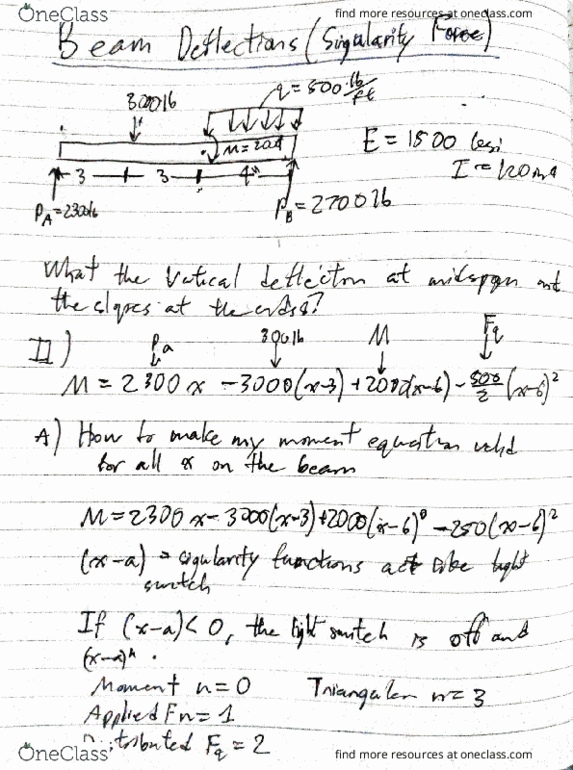 OneClass
find more resources at oneclass.com
Beam Deflections (Singularity Force)
q=500 lb/ft
3000lb
M=200
E = 1500 ksi
3 3 4
P_A=2300lb
P_B=2700lb
What the Vertical deflection at midspan and
the slopes at the ends?
II) Pa 300lb M Fq
M = 2300x -3000(x-3) +2000(x-6) - 500/2 (x-6)²
A) How to make my moment equation valid
for all x on the beam
M=2300x-3000(x-3)+2000(x-6)⁰ -250(x-6)²
(x-a) = sigularity functions act like light
switch
If (x-a)<0, the light switch is off and
(x-a)ⁿ .
Moment n=0 Triangular n=3
Applied F n=1
Distributed Fq = 2
OneClass
find more resources at oneclass.com